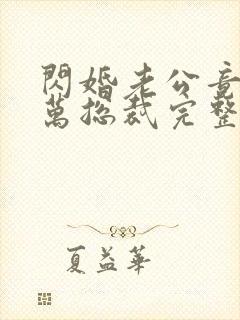 閃婚老公竟
萬總裁完整
夏益華